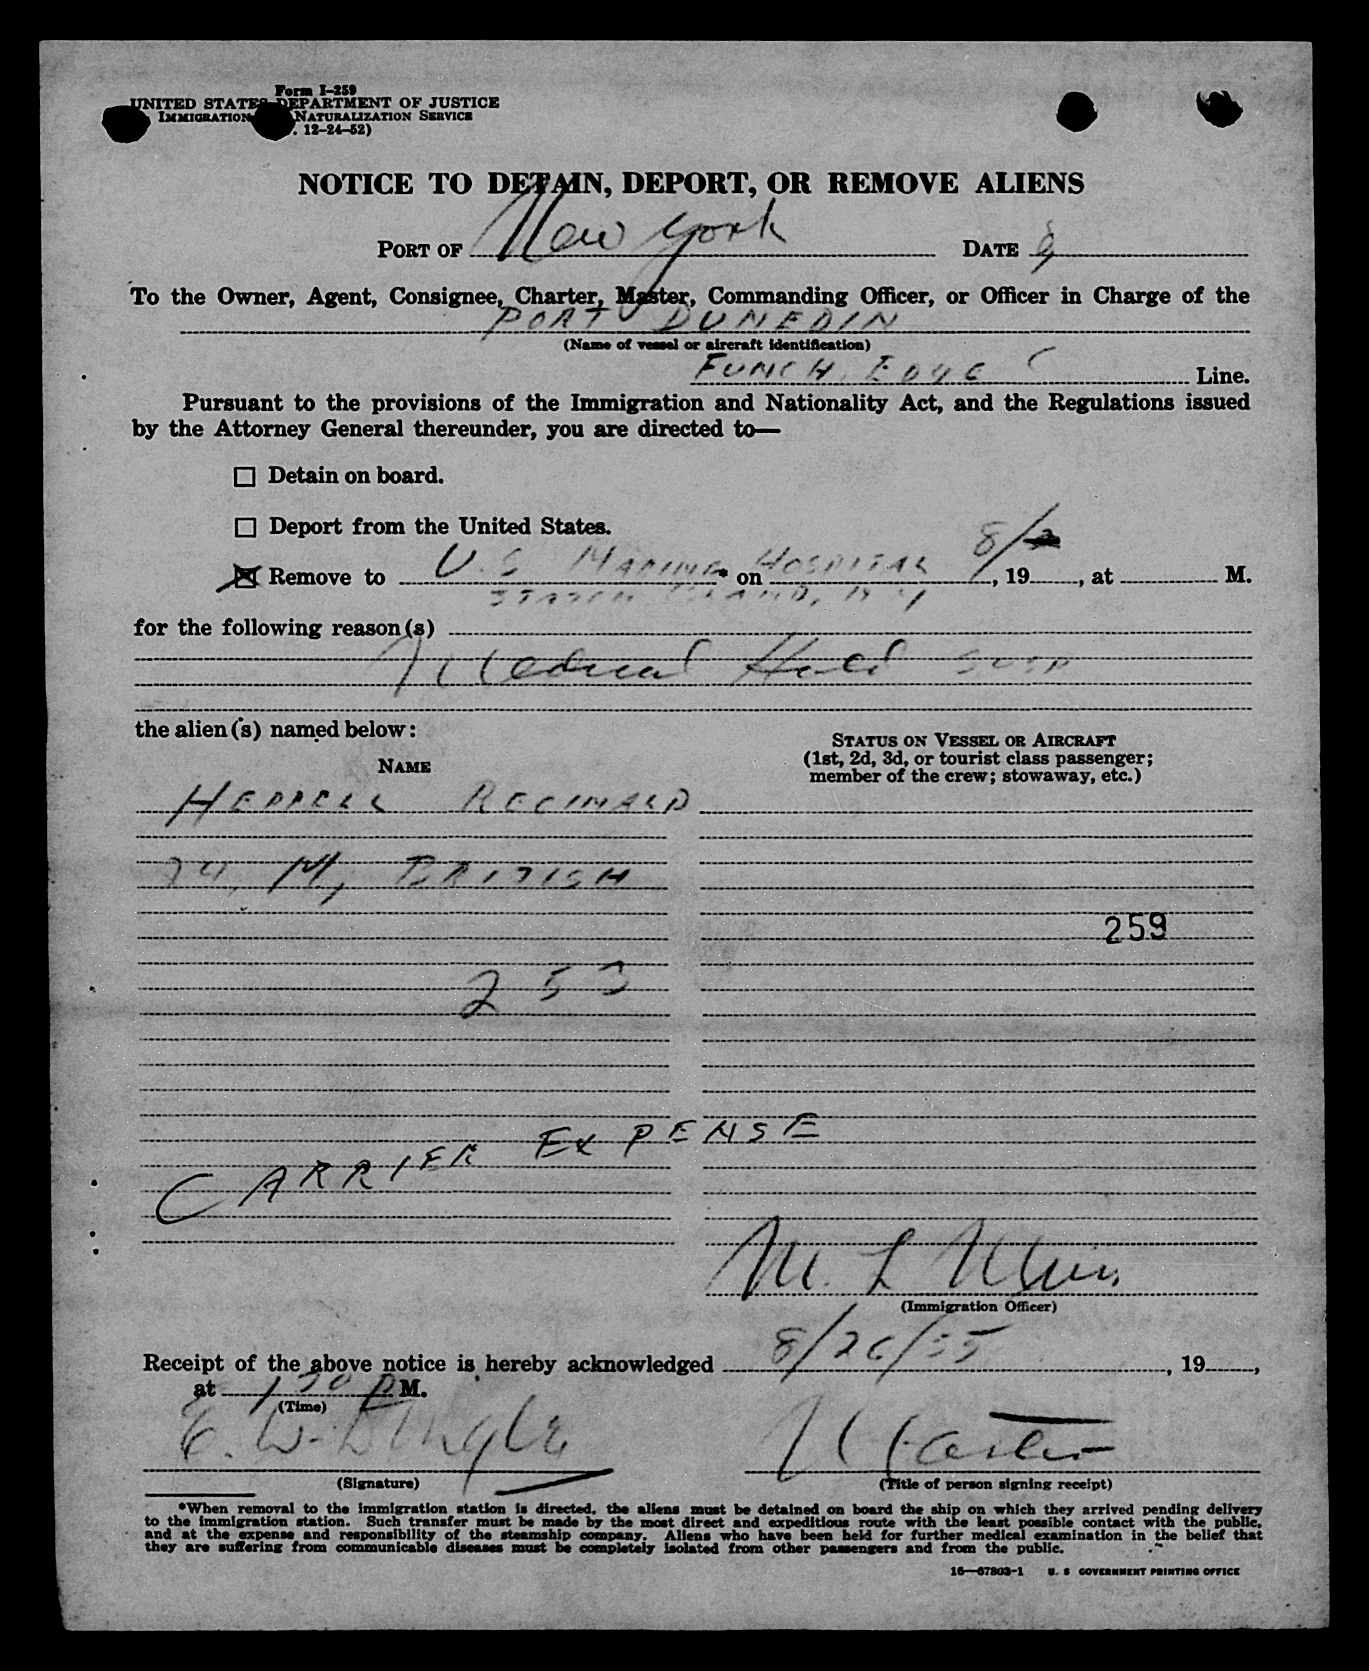 Form I-259
UNITED STATES DEPARTMENT OF JUSTICE
IMMIGRATION NATURALIZATION SERVICE
. 12-24-52)
NOTICE TO DETAIN, DEPORT, OR REMOVE ALIENS
PORT OF New York DATE
To the Owner, Agent, Consignee, Charter, Master, Commanding Officer, or Officer in Charge of the
PORT DUNEDIN
(Name of vessel or aircraft identification)
FUNCH, EDYE Line.
Pursuant to the provisions of the Immigration and Nationality Act, and the Regulations issued
by the Attorney General thereunder, you are directed to—
Detain on board.
Deport from the United States.
Remove to U.S MARINE * on HOSPITAL 8/ , 19 , at M.
STATEN ISLAND, N Y
for the following reason(s)
Medical Hold SUSP
the alien(s) named below:
STATUS ON VESSEL OR AIRCRAFT
(1st, 2d, 3d, or tourist class passenger;
member of the crew; stowaway, etc.)
NAME
HEPPELL REGINALD
24, M, BRITISH
259
253
CARRIER EXPENSE
M. L
(Immigration Officer)
Receipt of the above notice is hereby acknowledged 8/26/55 , 19 ,
at 1 30 P M.
(Time)
E. W. Dingle Master
(Signature) (Title of person signing receipt)
*When removal to the immigration station is directed, the aliens must be detained on board the ship on which they arrived pending delivery
to the immigration station. Such transfer must be made by the most direct and expeditious route with the least possible contact with the public,
and at the expense and responsibility of the steamship company. Aliens who have been held for further medical examination in the belief that
they are suffering from communicable diseases must be completely isolated from other passengers and from the public.
16—67803-1 U. S GOVERNMENT PRINTING OFFICE